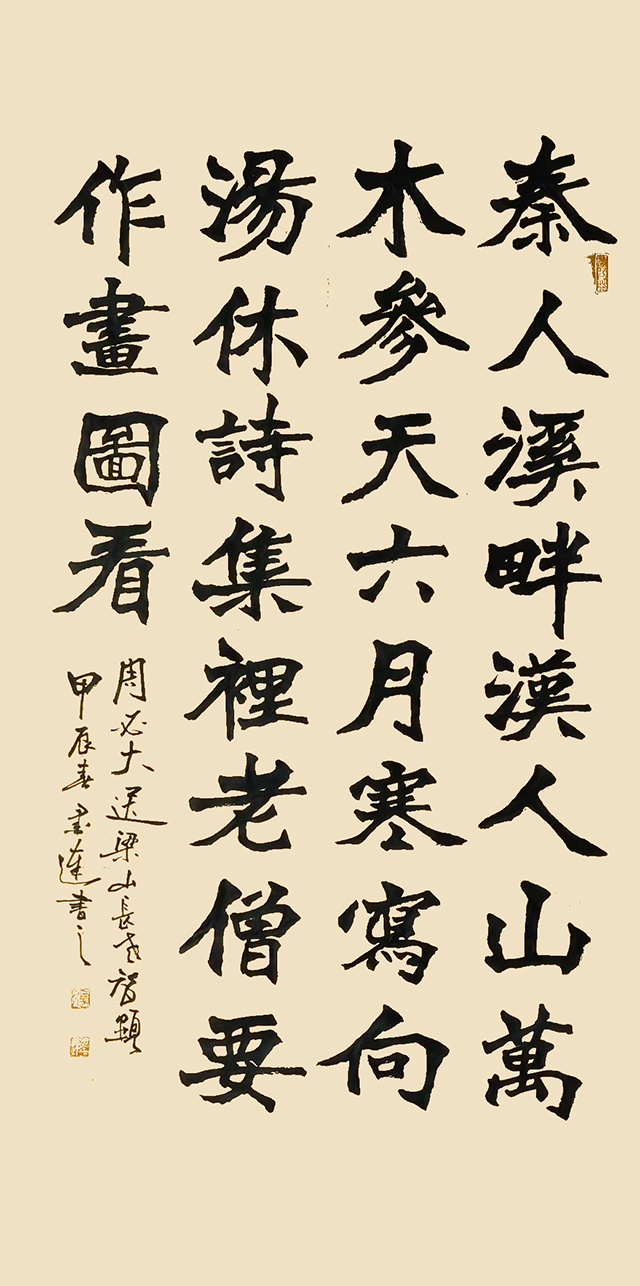 秦人溪畔漢人山萬
木參天六月寒寫向
湯休詩集裡老僧要
作畫圖看
周必大送梁山長老智顯
甲辰春書蓮書之